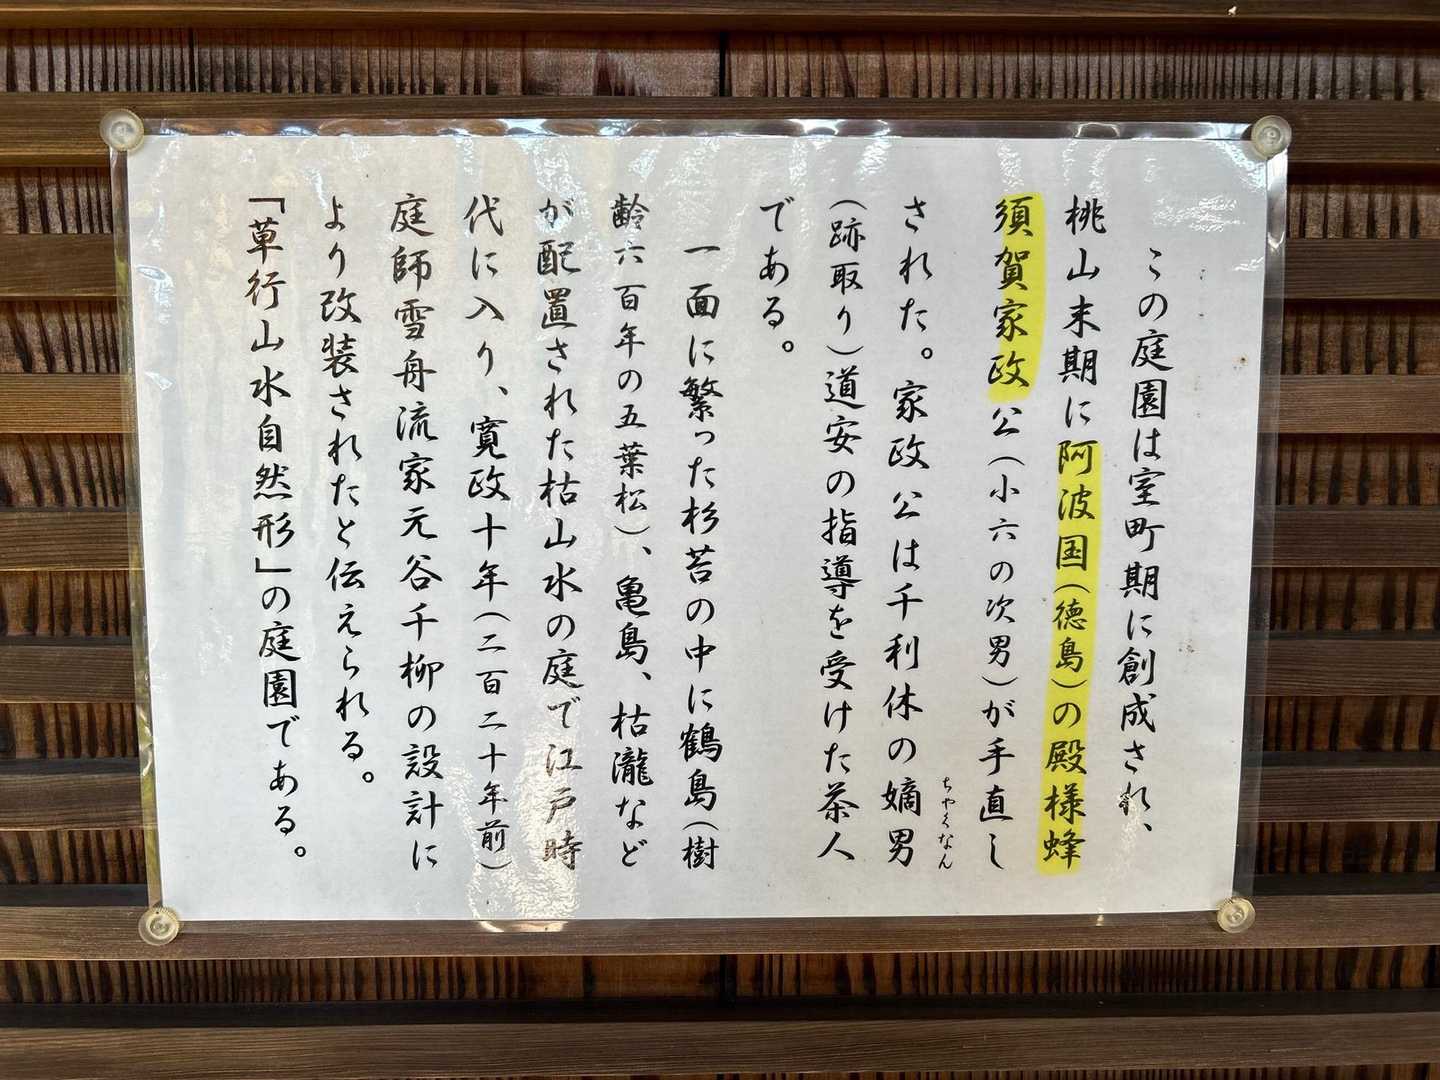 この庭園は室町期に創成され、
桃山末期に阿波国(徳島)の殿様蜂
須賀家政公(小六の次男)が手直し
された。家政公は千利休の嫡男
ちゃくなん
(跡取り)道安の指導を受けた茶人
である。
一面に繁った杉苔の中に鶴島(樹
齢六百年の五葉松)、亀島、枯瀧など
が配置された枯山水の庭で江戸時
代に入り、寛政十年(二百二十年前)
庭師雪舟流家元谷千柳の設計に
より改装されたと伝えられる。
「草行山水自然形」の庭園である。